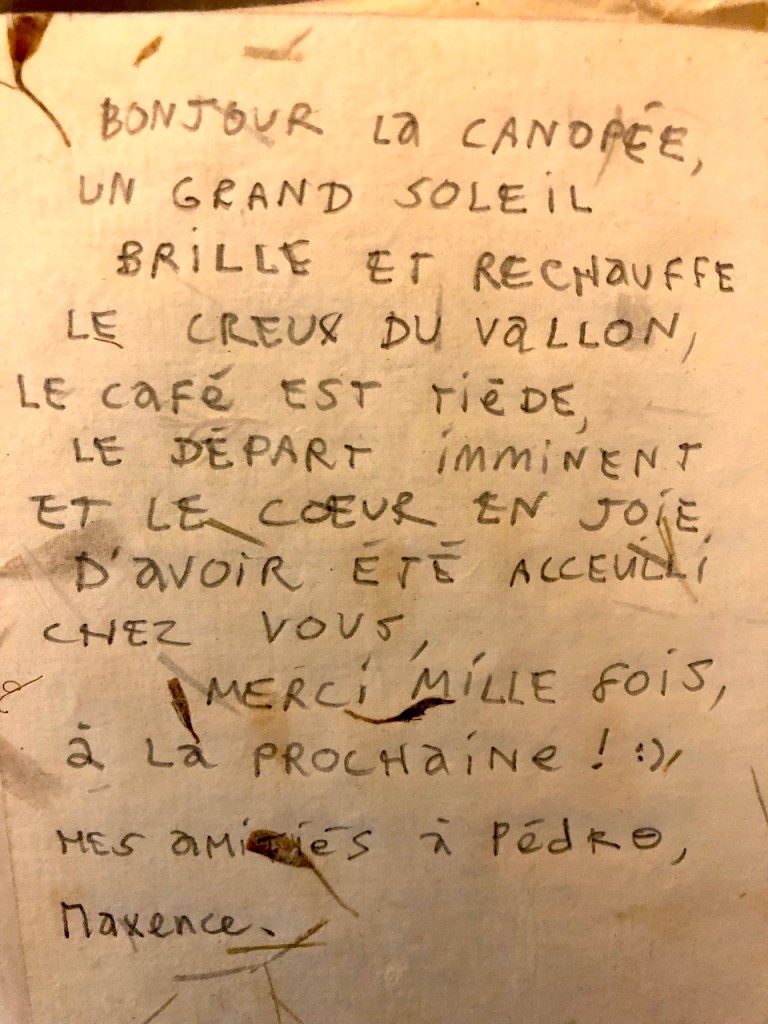 BONJOUR La CANOPÉE,
UN GRAND SOLEIL
BRILLE ET RECHAUFFE
LE CREUX DU VaLLON,
LE Café EST TIéDE,
LE DÉPART IMMINENT
ET LE CŒUR EN JOIE,
D'aVOIR ÉTÉ ACCEUILLI
CHEZ VOUS,
MERCI MILLE FOIS,
à La PROCHaiNe ! :)
MES aMITIéS à PédRO,
Maxence.